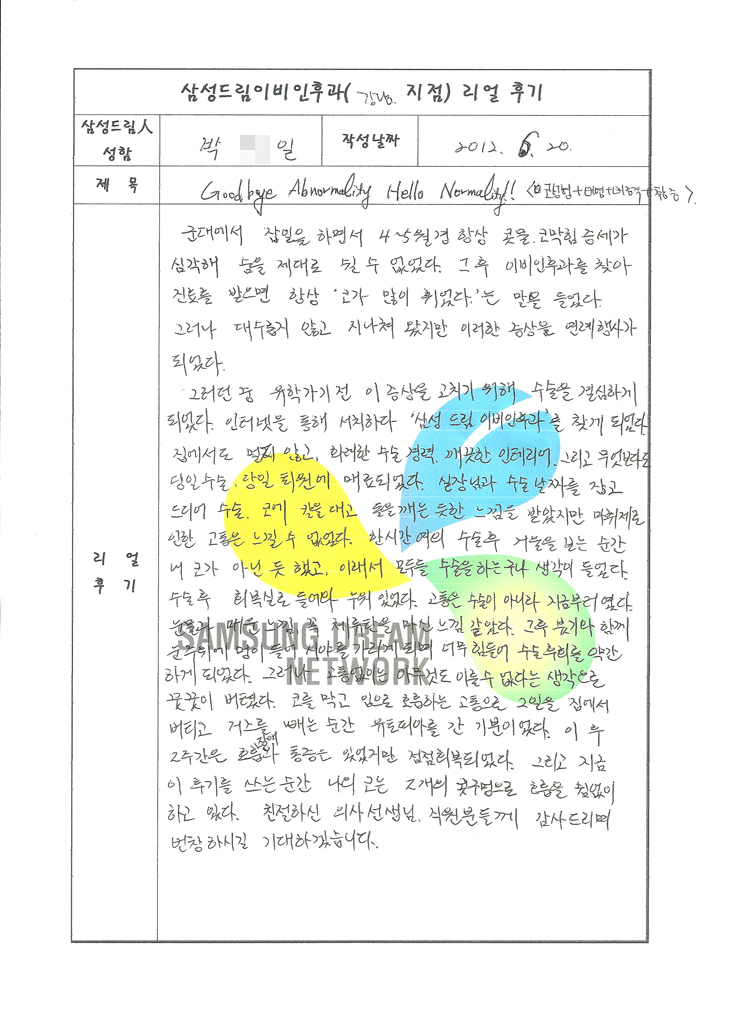 삼성드림이비인후과( 강남. 지점) 리얼 후기
삼성드림人
성함
박 일
작성날짜
2012. 6. 20.
제 목
Goodbye Abnormality Hello Normality!!
군대에서 잡일을 하면서 4~5월경 항상 콧물, 코막힘 증세가
심각해 숨을 제대로 쉴 수 없었다. 그 후 이비인후과를 찾아
진료를 받으면 항상 '코가 많이 휘었다.'는 말을 들었다.
그러나 대수롭지 않고 지나쳐 왔지만 이러한 증상을 연례행사가
되었다.
그러던 중 유학가기 전 이 증상을 고치기 위해 수술을 결심하게
되었다. 인터넷을 통해 서치하다 '삼성 드림 이비인후과'를 찾게 되었다.
집에서도 멀지 않고, 화려한 수술 경력, 깨끗한 인테리어, 그리고 무엇보다도
당일수술, 당일 퇴원에 매료되었다. 실장님과 수술 날짜를 잡고
드디어 수술. 코에 칼을 대고 돌을 깨는 듯한 느낌을 받았지만 마취제로
인한 고통은 느낄 수 없었다. 한시간 여의 수술후 거울을 보는 순간
내 코가 아닌 듯 했고, 이래서 모두들 수술을 하는구나 생각이 들었다.
수술후 회복실로 들어와 누워 있었다. 고통은 수술이 아니라 지금부터였다.
눈물과 매운 느낌 꼭 최루탄을 마신 느낌 같았다. 그 후 붓기와 함께
눈주위에 멍이 들어 시야를 가리게 되며 너무 힘들어 수술후회를 약간
하게 되었다. 그러나 고통없이는 아무것도 이룰수 없다는 생각으로
꿋꿋이 버텼다. 코를 막고 입으로 호흡하는 고통으로 2일을 집에서
버티고 거즈를 빼는 순간 유토피아를 간 기분이었다. 이 후
2주간은 호흡장애와 통증은 있었지만 점점회복되었다. 그리고 지금
이 후기를 쓰는 순간 나의 코는 2개의 콧구멍으로 호흡을 힘없이
하고 있다. 친절하신 의사선생님, 직원분들께 감사드리며
번창하시길 기대하겠습니다.
리 얼
후 기
SAMSUNG DREAM
NETWORK